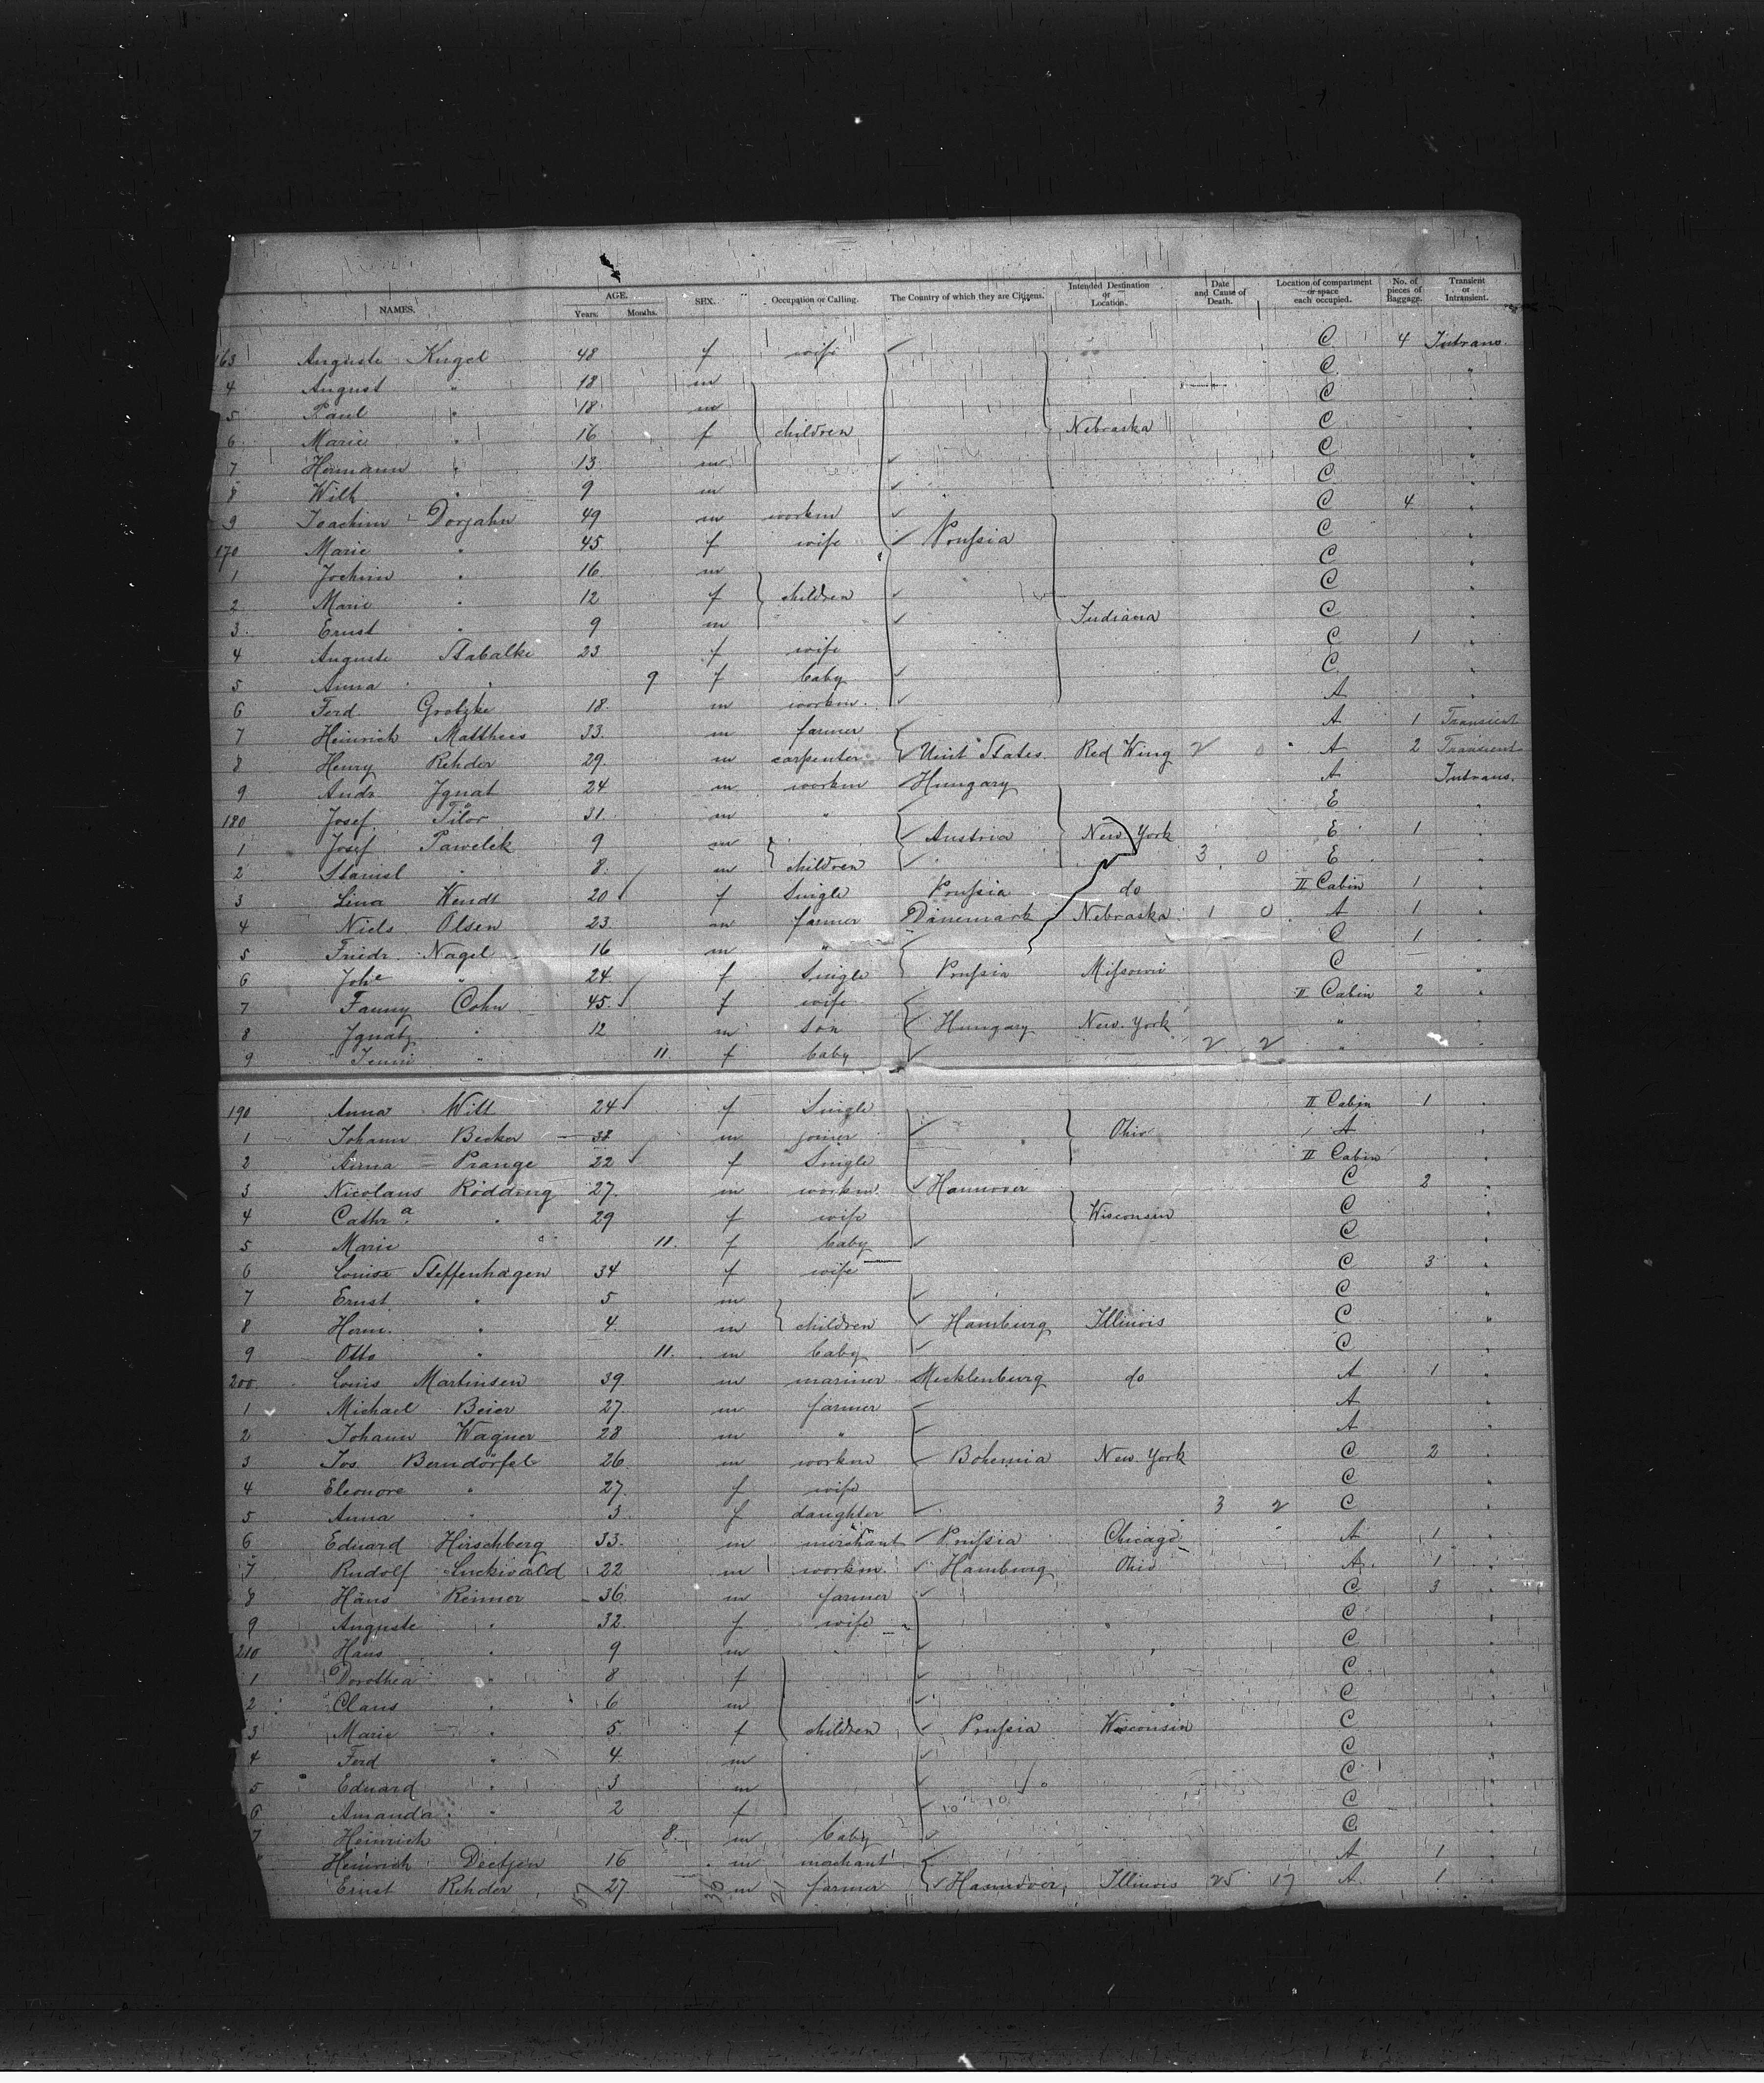 NAMES. AGE. Years. Months. SEX. Occupation or Calling. The Country of which they are Citizens. Intended Destination or Location. Date and Cause of Death. Location of compartment or space each occupied. No. of pieces of Baggage. Transient or Intransient.
163 Auguste Kugel 48 f wife C 4 Intrans.
4 August " 18 m C "
5 Paul " 18 m C
6 Marie " 16 f children Nebraska C "
7 Hermann " 13 m C "
8 Wilh " 9 m C "
9 Joachim Dorjahn 49 m workm C 4 "
170 Marie " 45 f wife Prussia C "
1 Jochim " 16 m C "
2 Marie " 12 f children C "
3 Ernst " 9 m Indiana C "
4 Auguste Stabalke 23 f wife C 1 "
5 Anna " 9 f baby C "
6 Ferd Grotzke 18 m workm. A "
7 Heinrich Matthies 33 m farmer A 1 Transient
8 Henry Rehder 29 m carpenter Unit States Red Wing 2 0 A 2 Transient
9 Andr Ignat 24 m workm Hungary A Intrans.
180 Josef 31 m " E "
1 Josef Pawelek 9 m Austria New York E 1 "
2 Stanisl " 8 m children 3 0 E "
3 Lina Wendt 20 f Single Prussia do II Cabin 1 "
4 Niels Olsen 23 m farmer Dänemark Nebraska 1 0 A 1 "
5 Friedr. Nagel 16 m " C 1 "
6 Johe " 24 f Single Prussia Missouri C "
7 Fanny Cohn 45 f wife II Cabin 2 "
8 Ignatz " 12 m son Hungary New York " "
9 Jenni " 11 f baby 2 2 " "
190 Anna Witt 24 f Single II Cabin 1 "
1 Johann Becker 38 m joiner Ohio A "
2 Anna Prange 22 f Single II Cabin "
3 Nicolaus Rödding 27 m workm. Hannover C 2 "
4 Cathra " 29 f wife Wisconsin C "
5 Marie " 11 f baby C "
6 Louise Steffenhagen 34 f wife C 3 "
7 Ernst " 5 m C "
8 Herm. " 4 m children Hamburg Illinois C "
9 Otto " 11 m baby C "
200 Louis Martinsen 39 m mariner Mecklenburg do A 1 "
1 Michael Beier 27 m farmer A "
2 Johann Wagner 28 m " A "
3 Jos. Berndörfel 26 m workm Bohemia New York C 2 "
4 Eleonore " 27 f wife C "
5 Anna " 3 f daughter 3 2 C "
6 Eduard Hirschberg 33 m merchant Prussia Chicago A 1 "
7 Rudolf Luckwald 22 m workm. Hamburg Ohio A 1 "
8 Hans Reimer 36 m farmer C 3 "
9 Auguste " 32 f wife C "
210 Hans " 9 m C "
1 Dorothea " 8 f C "
2 Claus " 6 m C "
3 Marie " 5 f children Prussia Wisconsin C "
4 Ferd " 4 m C "
5 Eduard " 3 m C "
6 Amanda " 2 f C "
7 Heinrich 8 m baby C "
Heinrich Deetjen 16 m merchant A 1 "
Ernst Rehder 27 m farmer Hannover Illinois 25 17 A 1 "